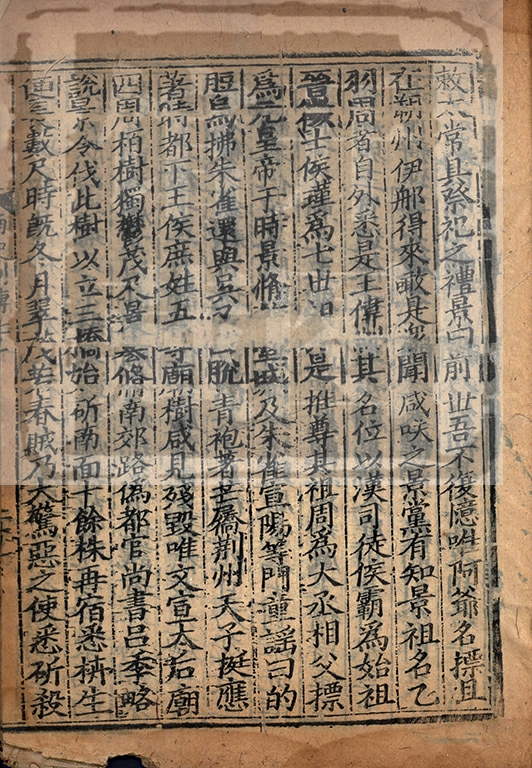 敕太常具祭祀之禮景曰前世吾不復憶唯阿爺名摽且
在朔州伊那得來噉是聞咸咲之景黨有知景祖名乙
羽周者自外悉是王偉其名位以漢司徒侯霸爲始祖
晉士侯瑾爲七世祖是推尊其祖周爲大丞相父摽
爲元皇帝于時景脩城及朱雀宣陽等門童謡曰的
脰烏拂朱雀還與吳脫青袍著芒屩荆州天子挺應
著時都下王侯庶姓五等廟樹咸見殘毀唯文宣太后廟
四周柏樹獨鬱茂及景篡脩南郊路僞都官尚書呂季略
說景令伐此樹以立三橋始斫南面十餘株再宿悉枿生
便長數尺時既冬月翠茂若春賊乃大驚惡之使悉斫殺